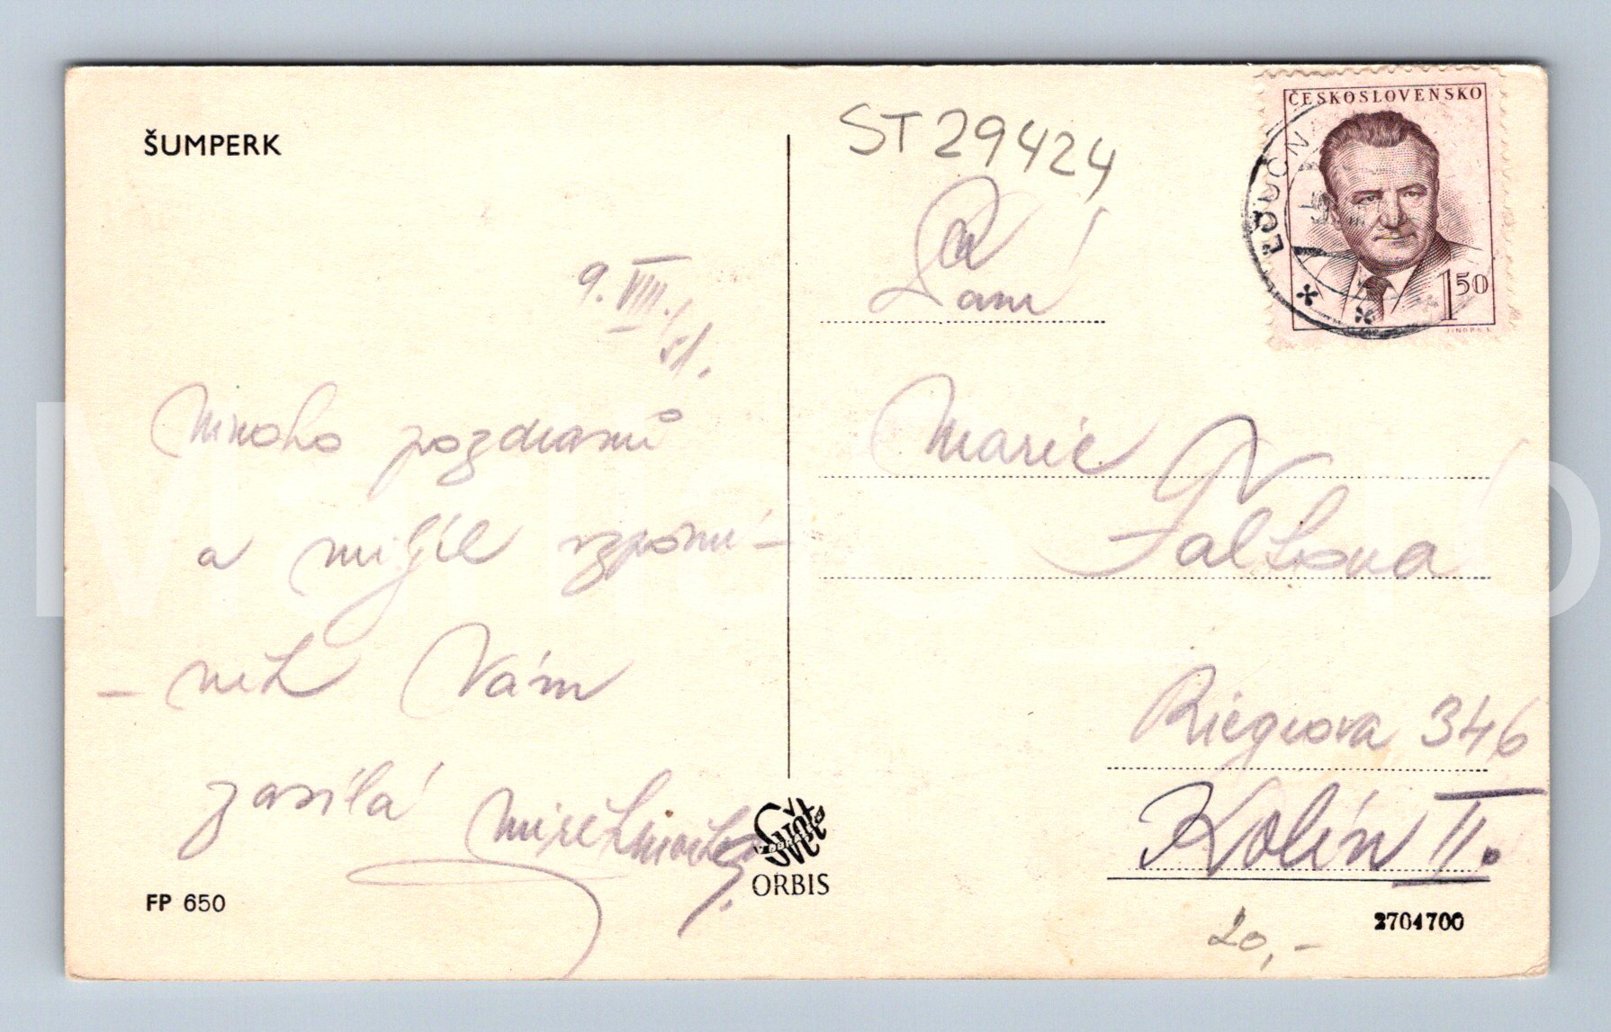 ŠUMPERK
9. VIII. 51.
Mnoho pozdravů
a milé vzpomí-
- nek Vám
zasílá Mirek
FP 650
Svět
Svět
ORBIS
ST 29424
ČESKOSLOVENSKO
1 50
LOUČN
Paní
Marie
Faltova
Riegrova 346
Kolín II.
20,-
2704700